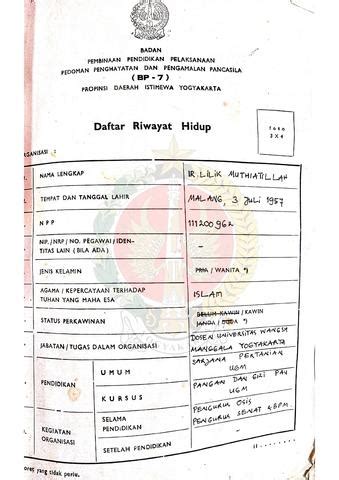 BADAN
PEMBINAAN PENDIDIKAN PELAKSANAAN
PEDOMAN PENGHAYATAN DAN PENGAMALAN PANCASILA
( BP - 7 )
PROPINSI DAERAH ISTIMEWA YOGYAKARTA
Daftar Riwayat Hidup
Foto
3 X 4
ORGANISASI :
NAMA LENGKAP
IR. LILIK MUTHIATILLAH
TEMPAT DAN TANGGAL LAHIR
MALANG, 3 Juli 1957
N P P
111200962
NIP./NRP/NO. PEGAWAI/IDEN-
TITAS LAIN (BILA ADA)
-
JENIS KELAMIN
PRIA / WANITA *)
AGAMA / KEPERCAYAAN TERHADAP
TUHAN YANG MAHA ESA
ISLAM
STATUS PERKAWINAN
BELUM KAWIN / KAWIN
JANDA / DUDA *)
JABATAN/TUGAS DALAM ORGANISASI
DOSEN UNIVERSITAS WANGSA
MANGGALA YOGYAKARTA
PENDIDIKAN
U M U M
SARJANA PERTANIAN
UGM
K U R S U S
PANGAN DAN GIZI PAU
UGM
KEGIATAN
ORGANISASI
SELAMA
PENDIDIKAN
PENGURUS OSIS
PENGURUS SENAT & BPM.
SETELAH PENDIDIKAN
oret yang tidak perlu.